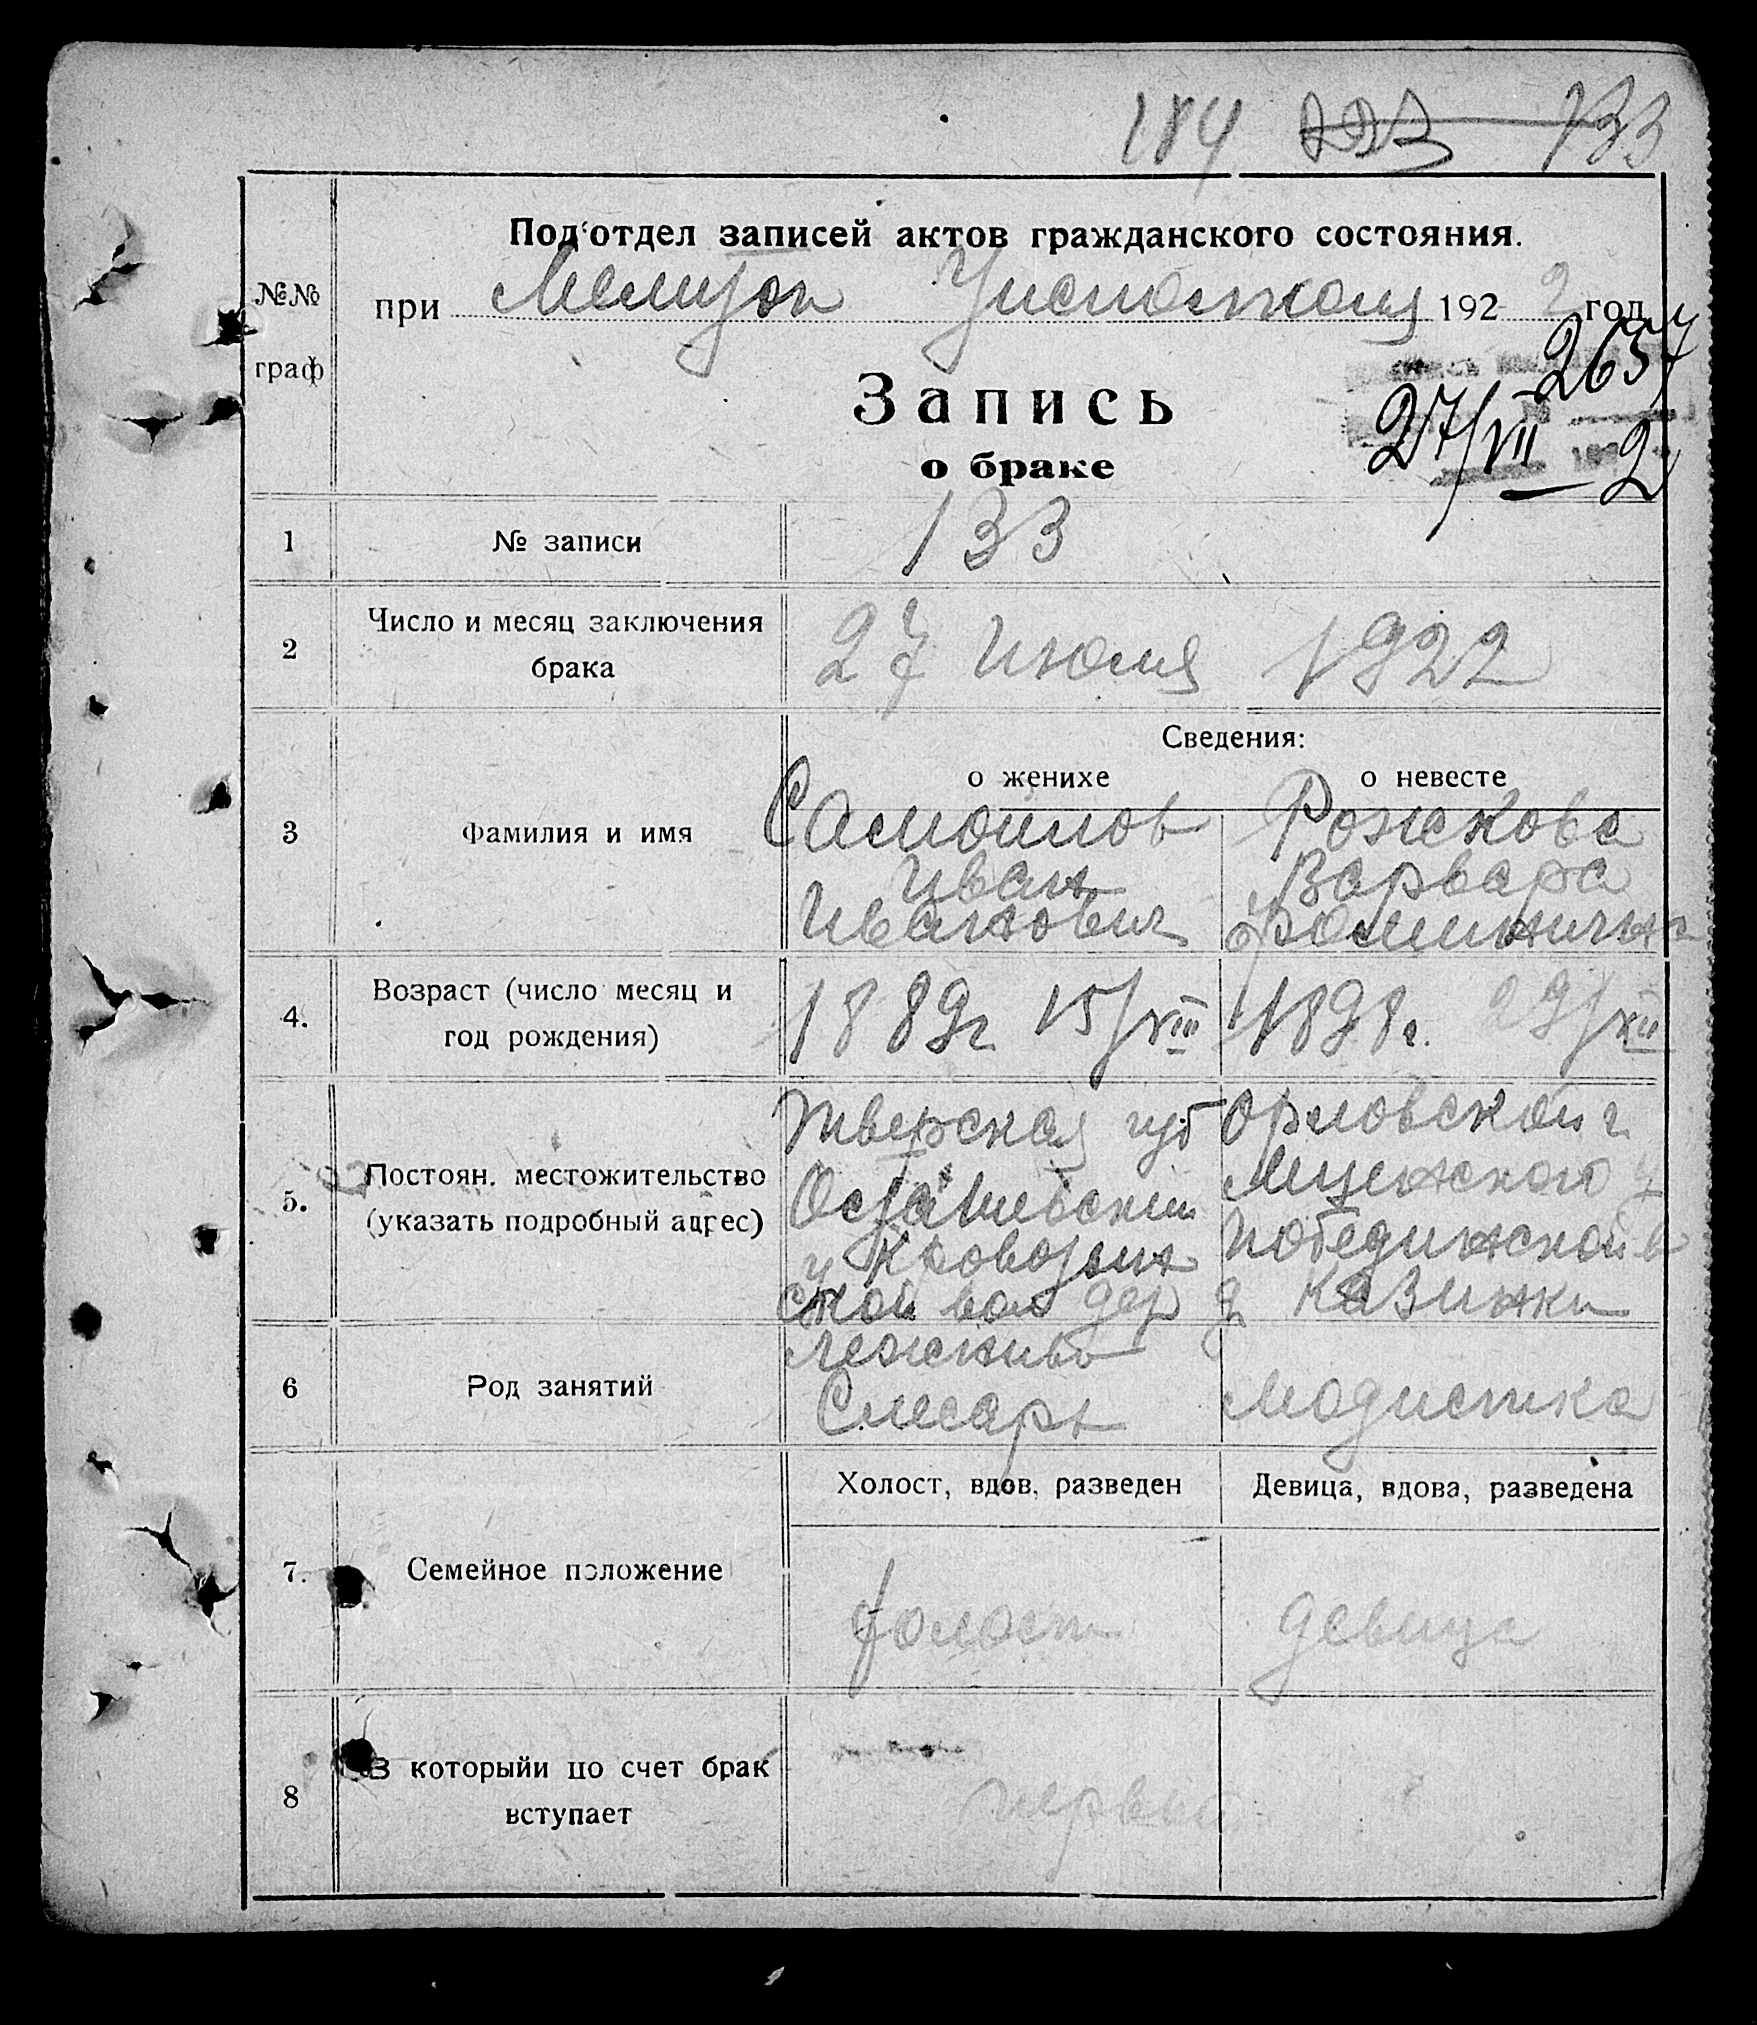 184 223 133
Под'отдел записей актов гражданского состояния.
№№ граф
при Исполкома 192 2 год
2657
27/VII 2
Запись
о браке
1 № записи 133
2 Число и месяц заключения брака 27 июля 1922
Сведения:
о женихе о невесте
3 Фамилия и имя
Самоилов Рожкова
Иван Варвара
Иванович Фоминична
4. Возраст (число месяц и год рождения) 1889г 15/VIII 1898г. 29/XII
5. Постоян. местожительство (указать подробный адрес)
Тверская губ Орловской г
Осташевский Мценского у
у Кровотын Победи́нской в
ской вол дер д Казинки
Лежнево
6 Род занятий Слесарь Модистка
Холост, вдов, разведен Девица, вдова, разведена
7. Семейное положение холост девица
8 В которыйи по счет брак вступает первый